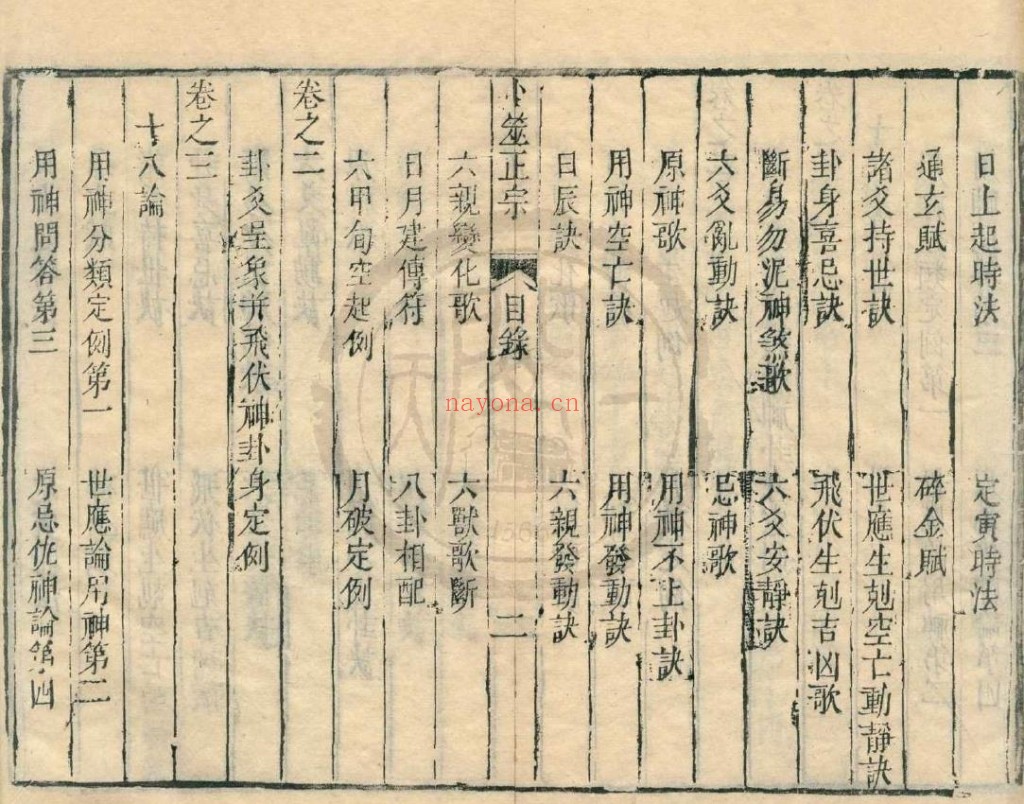 日上起時法　定寅時法
通玄賦　碎金賦
諸爻持世訣　世應生剋空亡動靜訣
卦身喜忌訣　飛伏生剋吉凶歌
斷易勿泥神煞歌　六爻安靜訣
六爻亂動訣　忌神歌
原神歌　用神不上卦訣
用神空亡訣　用神發動訣
日辰訣　六親發動訣
卜筮正宗　目錄　二
六親變化歌　六獸歌斷
日月建傳符　八卦相配
六甲旬空起例　月破定例
卷之二
卦爻呈象并飛伏神卦身定例
卷之三
十八論
用神分類定例第一　世應論用神第二
用神問答第三　原忌仇神論第四
nayona.cn